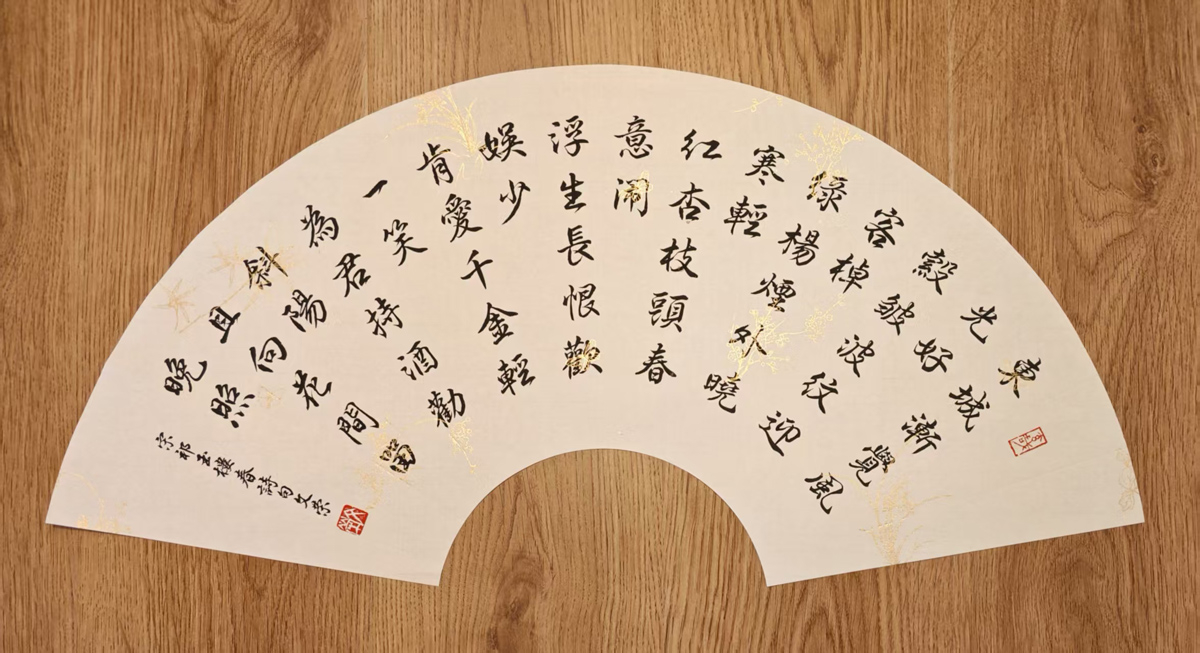 東城漸覺風
光好
縠皺波紋迎
客棹
綠楊煙外曉
寒輕
紅杏枝頭春
意鬧
浮生長恨歡
娛少
肯愛千金輕
一笑
為君持酒勸
斜陽
且向花間留
晚照
宋祁玉樓春詩句文榮